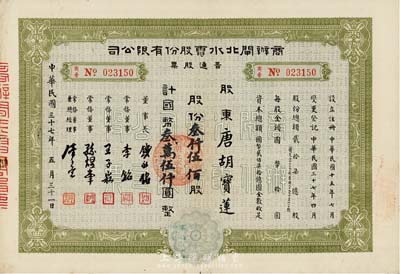 司公限有份股電水北閘辦商
票股通普
商字 No 023150
商字 No 023150
設立註冊 中華民國十五年七月
變更登記 中華民國三十七年四月
股份總額 貳拾柒億股
每股金額 國幣拾圓
資本總額 國幣貳佰柒拾億圓全數收足
股東 唐胡寶蓮
股份叁仟伍佰股
計國幣叁萬伍仟圓整
董事長
常務董事 李銘
常務董事 王子崧
常務董事
常務董事兼總經理
中華民國三十七年 五月 三十一日